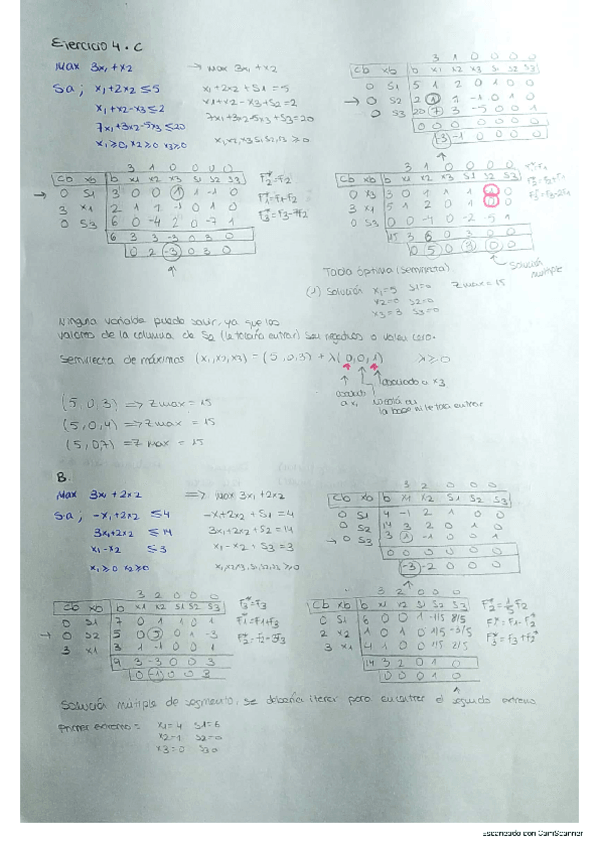 Ejercicio 4.C
Max 3x1+x2 → Max 3x1+x2
Sa; x1+2x2≤5 x1+2x2+S1=5
x1+x2-x3≤2 x1+x2-x3+S2=2
7x1+3x2-5x3≤20 7x1+3x2-5x3+S3=20
x1≥0, x2≥0 x3≥0
3 1 0 0 0 0
Cb xb b x1 x2 x3 S1 S2 S3
0 S1 5 1 2 0 1 0 0
→ 0 S2 2 1 1 -1 0 1 0
0 S3 20 7 3 -5 0 0 1
0 0 0 0 0 0 0
-3 -1 0 0 0 0
3 1 0 0 0 0
Cb xb b x1 x2 x3 S1 S2 S3
→ 0 S1 3 0 0 1 1 -1 0
3 x1 2 1 1 -1 0 1 0
0 S3 6 0 -4 2 0 -7 1
6 3 3 -3 0 3 0
0 2 -3 0 3 0
3 1 0 0 0 0
Cb xb b x1 x2 x3 S1 S2 S3
3 x1 5 1 2 0 1 0 0
15 3 6 0 3 0 0
0 5 0 3 0 0
Solución múltiple
Tabla óptima (Semirrecta)
(1) Solución x1=5 S1=0 Zmax=15
x2=0 S2=0
x3=3 S3=0
Ninguna variable puede salir, ya que los
valores de la columna de S2 (le tocaría entrar) son negativos o valen cero.
Semirrecta de máximos (x1,x2,x3) = (5,0,3) + λ(0,0,1) λ≥0
asociado a x1
asociado a x3
(5,0,3) => Zmax=15
(5,0,4) => Zmax=15
(5,0,7) => Zmax=15
B.
Max 3x1+2x2 => Max 3x1+2x2
Sa; -x1+2x2 ≤4 -x1+2x2+S1=4
3x1+2x2 ≤14 3x1+2x2+S2=14
x1-x2 ≤3 x1-x2+S3=3
x1≥0 x2≥0
3 2 0 0 0
Cb xb b x1 x2 S1 S2 S3
0 S1 4 -1 2 1 0 0
0 S2 14 3 2 0 1 0
→ 0 S3 3 1 -1 0 0 1
0 0 0 0 0 0
-3 -2 0 0 0
3 2 0 0 0
Cb xb b x1 x2 S1 S2 S3
0 S1 7 0 1 1 0 1
→ 0 S2 5 0 5 0 1 -3
3 x1 3 1 -1 0 0 1
9 3 -3 0 0 3
0 -1 0 0 3
3 2 0 0 0
Cb xb b x1 x2 S1 S2 S3
0 S1 6 0 0 1 -1/5 8/5
2 x2 1 0 1 0 1/5 -3/5
3 x1 4 1 0 0 1/5 2/5
14 3 2 0 1 0
0 0 0 1 0
Solución múltiple de segmento, se debería iterar para encontrar el segundo extremo
Primer extremo: x1=4 S1=6
x2=1 S2=0
x3=0
Escaneado con CamScanner